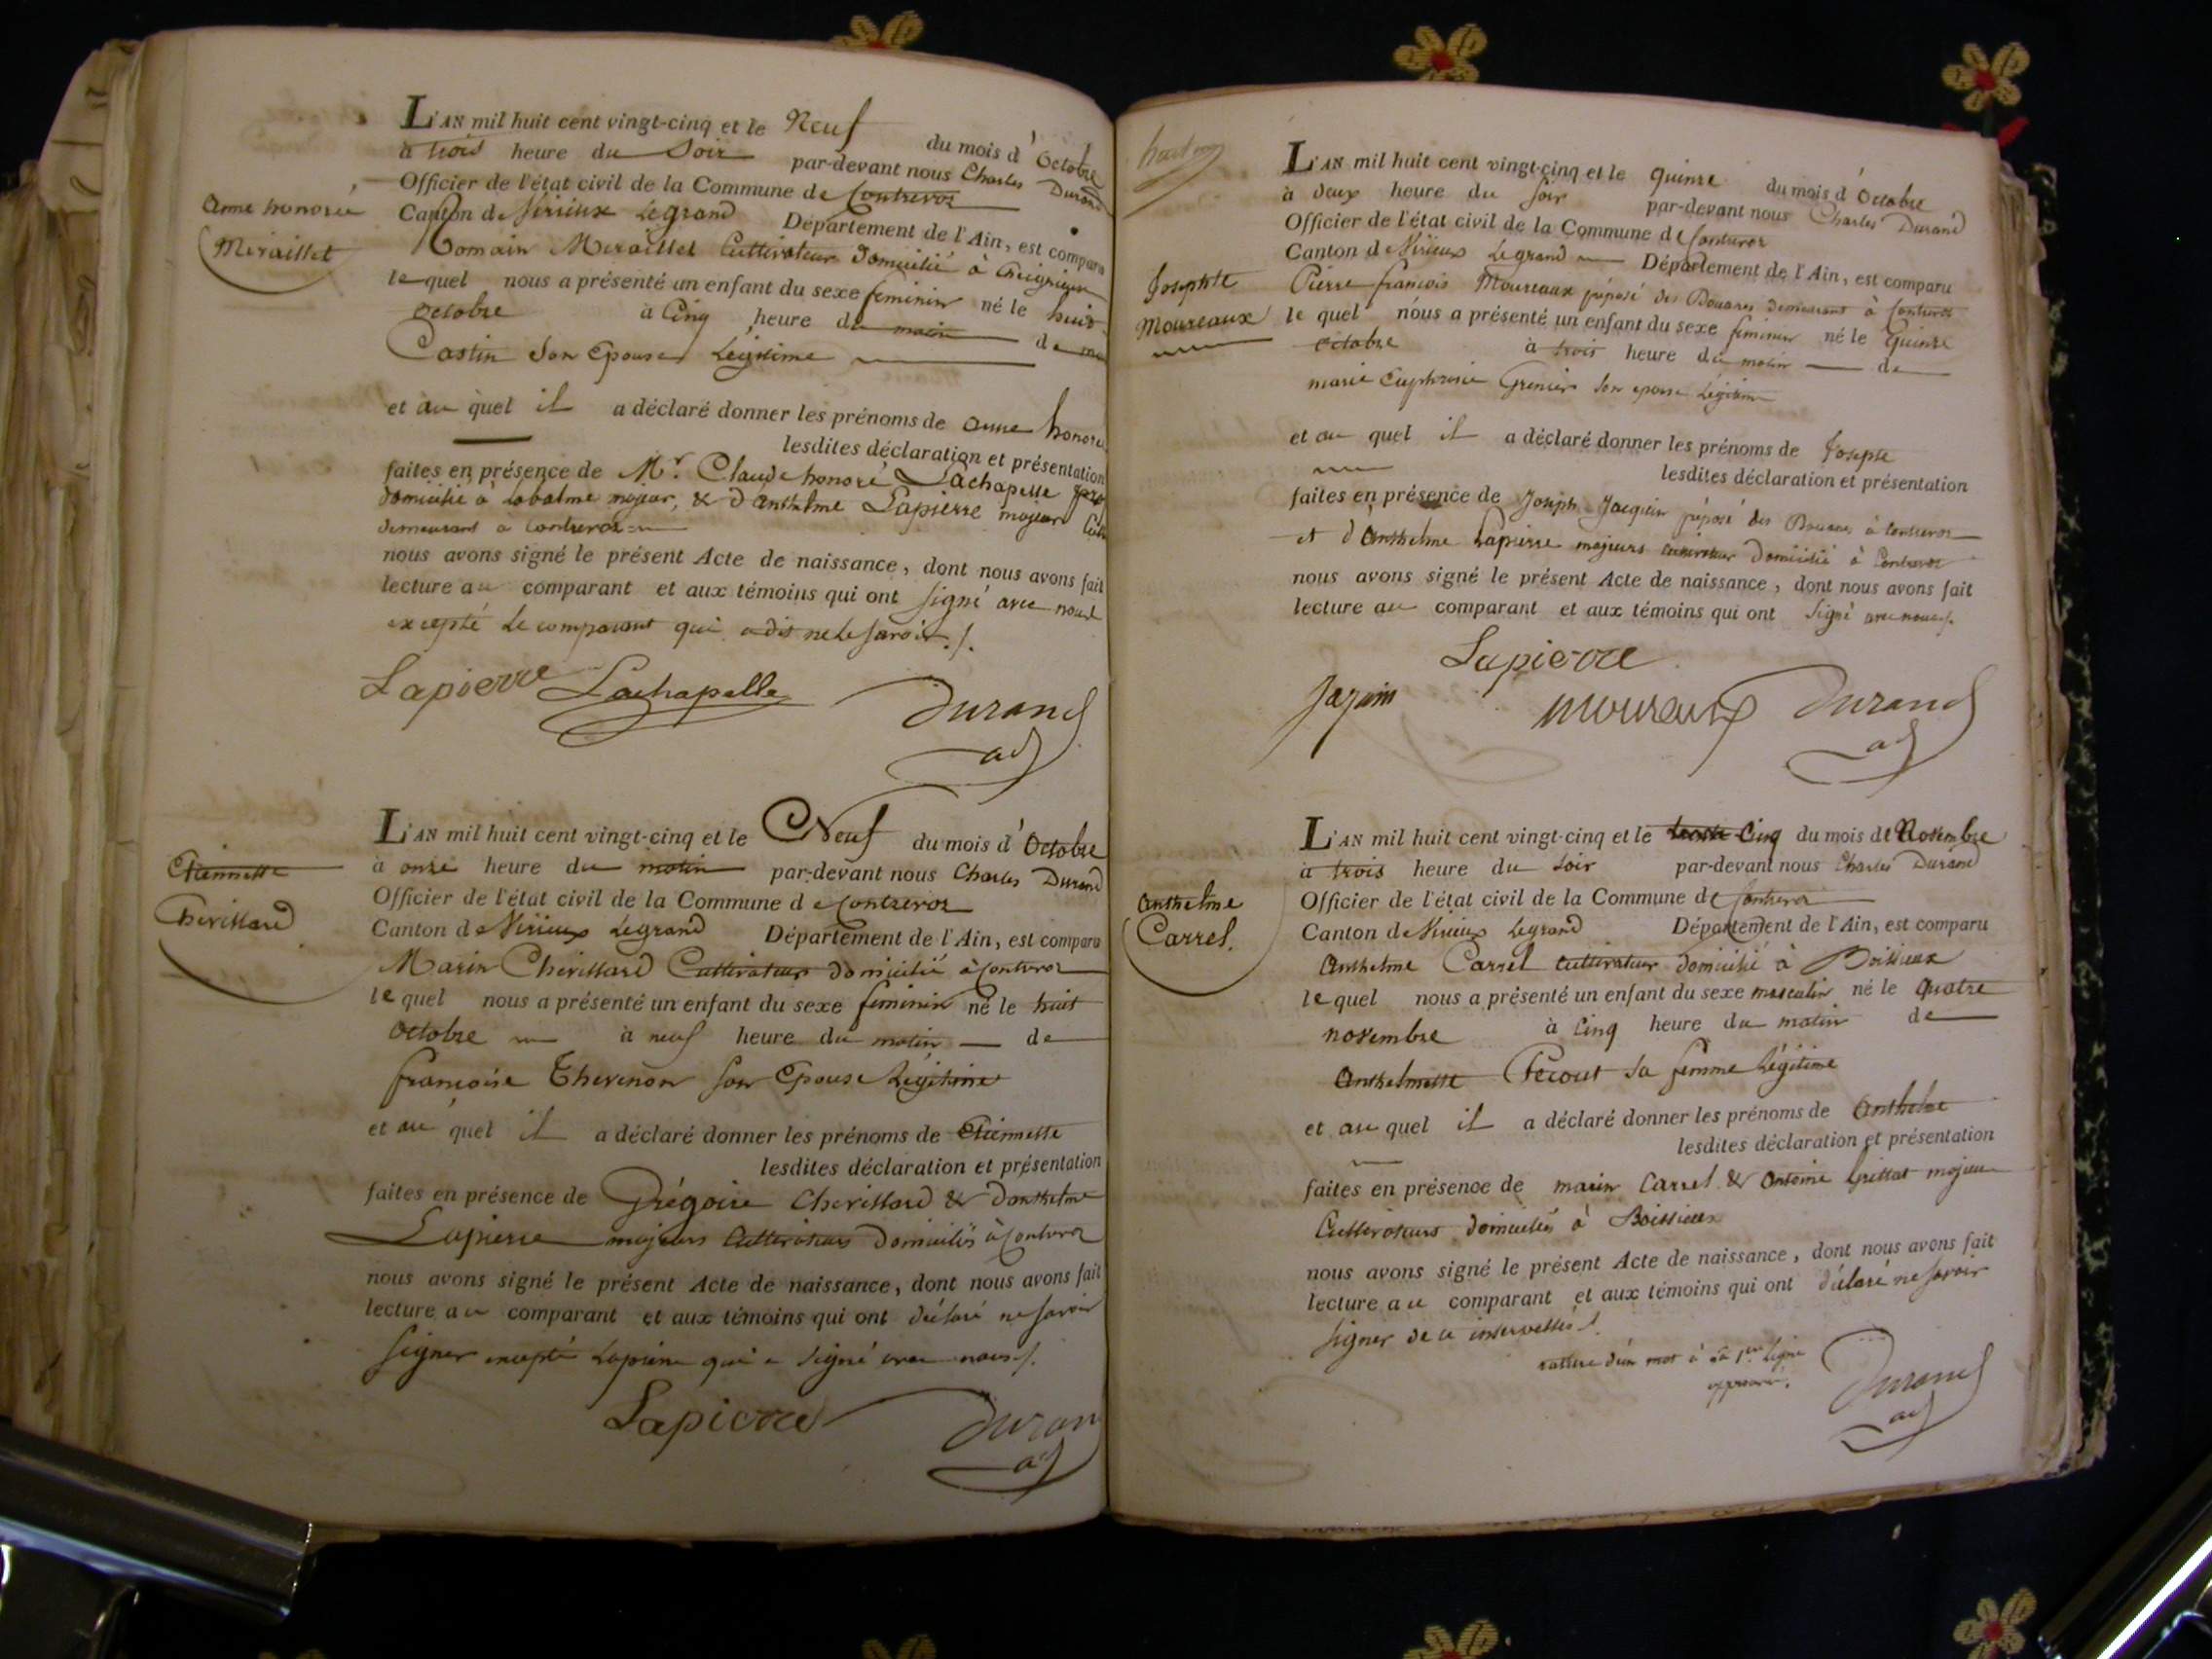 Anne honorée
Miraillet
L'AN mil huit cent vingt-cinq et le Neuf du mois d'Octobre
à trois heure du Soir par-devant nous Charles Durand
Officier de l'état civil de la Commune de Contrevoz
Canton de Virieux Legrand Département de l'Ain, est comparu
Romain Miraillet Cultivateur domicilié à
le quel nous a présenté un enfant du sexe feminin né le huit
octobre à Cinq heure du matin de
Castin Son Epouse Légitime
et au quel il a déclaré donner les prénoms de Anne honorée
lesdites déclaration et présentation
faites en présence de Mr. Claude honoré Lachapelle
domicilié à Labalme majeur, & d'Anthelme Lapierre majeur
demeurant a Contrevoz
nous avons signé le présent Acte de naissance, dont nous avons fait
lecture au comparant et aux témoins qui ont signé avec nous
excepté le comparant qui a dit ne le savoir ./.
Lapierre Lachapelle Durand
adj
Etiennette
Chevillard
L'AN mil huit cent vingt-cinq et le Neuf du mois d'Octobre
à onze heure du matin par-devant nous Charles Durand
Officier de l'état civil de la Commune de Contrevoz
Canton de Virieux Legrand Département de l'Ain, est comparu
Marin Chevillard Cultivateur domicilié à Contrevoz
le quel nous a présenté un enfant du sexe feminin né le huit
octobre à neuf heure du matin de
françoise Thevenon son Epouse Légitime
et au quel il a déclaré donner les prénoms de Etiennette
lesdites déclaration et présentation
faites en présence de Grégoire Chevillard & d'anthelme
Lapierre majeurs Cultivateurs domiciliés à Contrevoz
nous avons signé le présent Acte de naissance, dont nous avons fait
lecture au comparant et aux témoins qui ont déclaré ne savoir
signer excepté Lapierre qui a signé avec nous ./.
Lapierre Durand
adj
Josephte
Moureaux
L'AN mil huit cent vingt-cinq et le quinze du mois d'Octobre
à deux heure du soir par-devant nous Charles Durand
Officier de l'état civil de la Commune de Contrevoz
Canton de Virieux Legrand Département de l'Ain, est comparu
Pierre françois Moureaux préposé des Douanes demeurant à Contrevoz
le quel nous a présenté un enfant du sexe feminin né le quinze
octobre à trois heure du matin de
marie Euphrosie Grenier son epouse Légitime
et au quel il a déclaré donner les prénoms de Josephte
lesdites déclaration et présentation
faites en présence de Joseph Jacquin préposé des Douanes à Contrevoz
et d'Anthelme Lapierre majeurs cultivateur domicilié à Contrevoz
nous avons signé le présent Acte de naissance, dont nous avons fait
lecture au comparant et aux témoins qui ont signé avec nous ./.
Lapierre
Jaquin Moureaux Durand
adj
Anthelme
Carrel.
L'AN mil huit cent vingt-cinq et le Cinq du mois de Novembre
à trois heure du soir par-devant nous Charles Durand
Officier de l'état civil de la Commune de Contrevoz
Canton de Virieux Legrand Département de l'Ain, est comparu
Anthelme Carrel cultivateur domicilié à Boissieux
le quel nous a présenté un enfant du sexe masculin né le quatre
novembre à Cinq heure du matin de
Anthelmette Pecout sa femme Légitime
et au quel il a déclaré donner les prénoms de Anthelme
lesdites déclaration et présentation
faites en présence de marin Carrel & Antoine majeurs
Cultivateurs domiciliés à Boissieux
nous avons signé le présent Acte de naissance, dont nous avons fait
lecture au comparant et aux témoins qui ont déclaré ne savoir
signer de ce interpellés ./.
rature d'un mot à la 1ere Ligne
approuvé.
Durand
adj